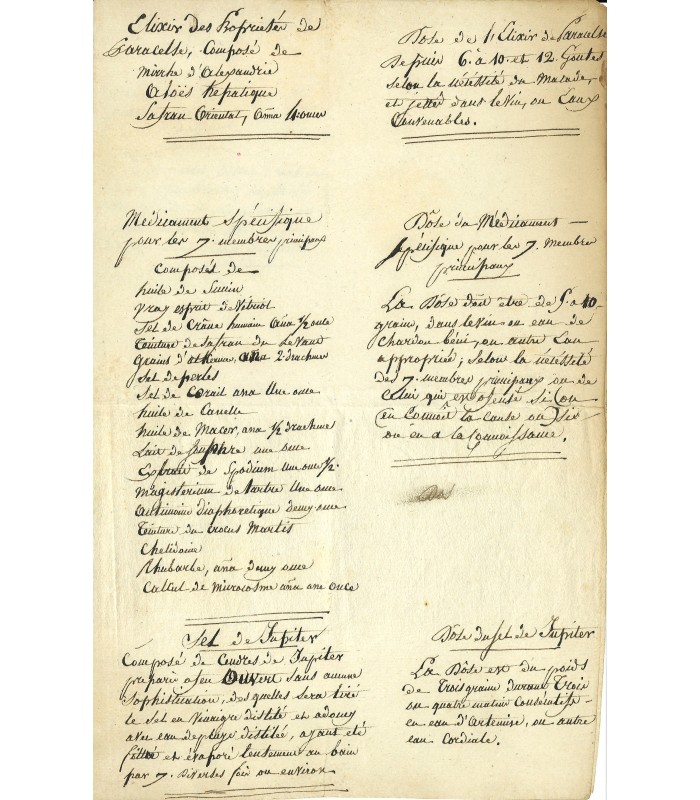 Elixir des Proprietés de
Paracelse, Composé de
mirrhe d'Alexandrie
Aloës hepatique
Safran Oriental, ana 4 onces
Dose de l'Elixir de Paracelse
Depuis 6. à 10. et 12. Goutes
selon la nécéssité du Malade,
et jetter dans le Vin, ou Eaux
Convenables.
Médicament Spécifique
pour les 7. membres principaux
Composés de
huile de
Vray esprit de Vitriol
Sel de Crâne humain ana ½ once
Teinture de Safran du Levant
Grains d'alkerme, ana 2. drachmes
Sel de perles
Sel de Corail ana Une once
huile de Canelle
huile de Macer, ana ½ drachme
Lait de souphre une once
Extrait de Spodium Une once ½.
Magisterium de tartre Une once
Antimoine diaphoretique demy once
Teinture du Crocus Martis
Chelidoine
Rhubarbe, ana demy once
Calcul de microcosme ana une once
Dôse du Médicament
spécifique pour les 7. membres
principaux
La Dôse doit etre de 5. a 10.
grains, dans le vin ou eau de
Chardon béni, ou autre Eau
appropriée; selon la nécéssité
des 7. membres principaux ou de
celui qui en offensé, si l'on
en connoît la cause ou si
on en a la Connoissance.
Dos
Sel de Jupiter
Composé de Cendres de Jupiter
preparée a feu Ouvert sans aucune
Sophistication, des quelles sera tiré
le Sel en Vinaigre distilé et adoucy
avec eau de pluye distilée, ayant été
filtré et évaporé lentement au bain
par 7. Diverses fois ou environ
Dose du sel de Jupiter
La Dôse est du poids
de Trois grains durant Trois
ou quatre matins Conséqutifs
en eau d'Artemise, ou autre
eau Cordiale.